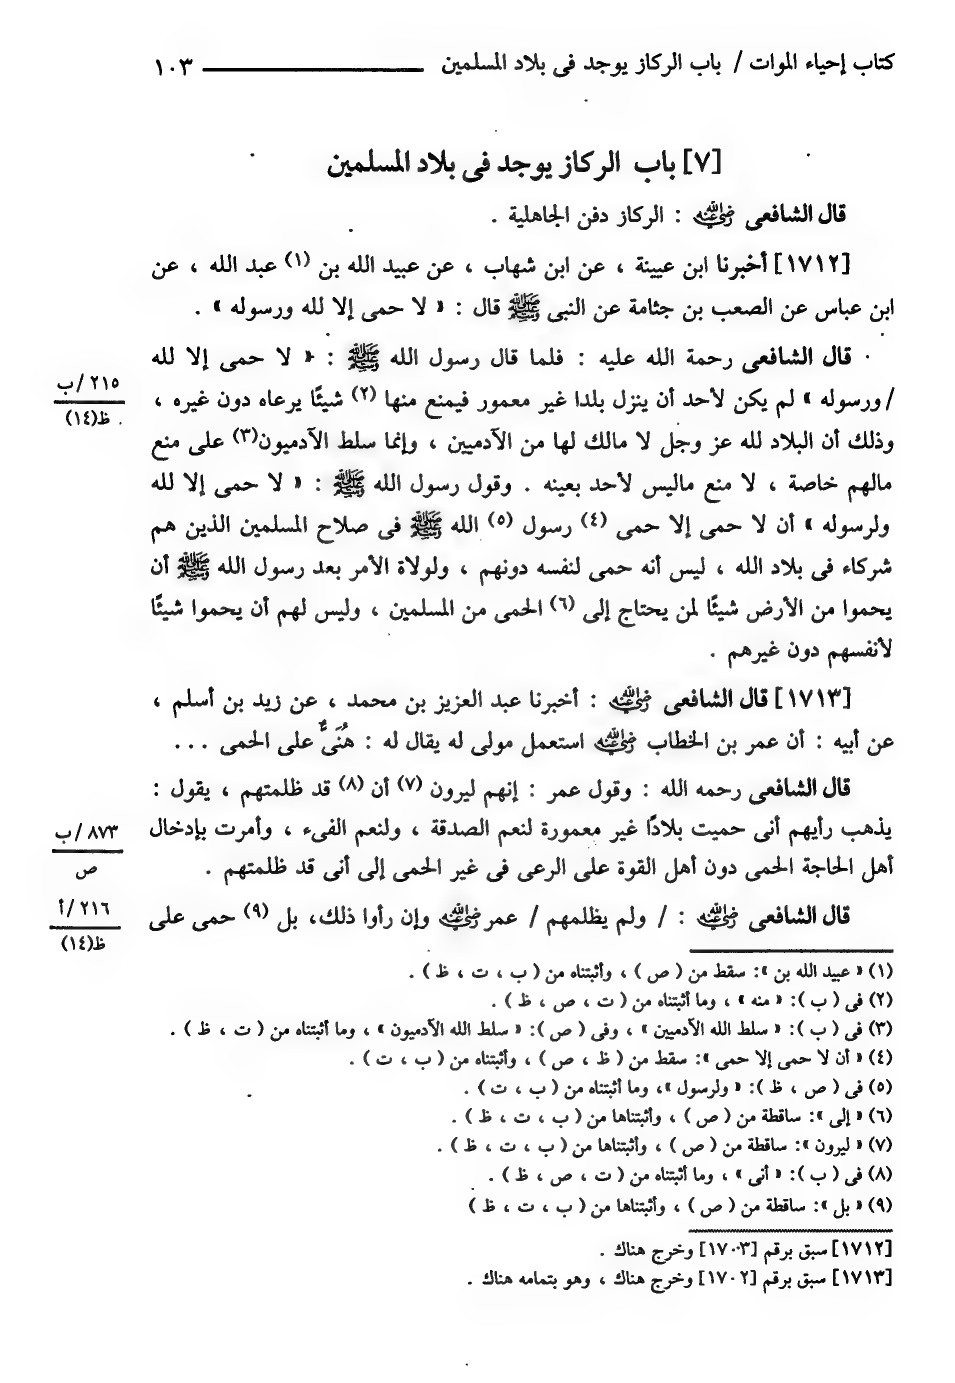 كتاب إحياء الموات / باب الركاز يوجد فى بلاد المسلمين ــــــــــ ١٠٣
[٧] باب الركاز يوجد فى بلاد المسلمين
قال الشافعى رضي الله عنه : الركاز دفن الجاهلية .
[١٧١٢] أخبرنا ابن عيينة ، عن ابن شهاب ، عن عبيد الله بن (١) عبد الله ، عن
ابن عباس عن الصعب بن جثامة عن النبى ﷺ قال : « لا حمى إلا لله ورسوله » .
قال الشافعى رحمة الله عليه : فلما قال رسول الله ﷺ : « لا حمى إلا لله
/ ورسوله » لم يكن لأحد أن ينزل بلدا غير معمور فيمنع منها (٢) شيئًا يرعاه دون غيره ،
٢١٥ /ب
ظ(١٤)
وذلك أن البلاد لله عز وجل لا مالك لها من الآدميين ، وإنما سلط الآدميون(٣) على منع
مالهم خاصة ، لا منع ماليس لأحد بعينه . وقول رسول الله ﷺ : « لا حمى إلا لله
ولرسوله » أن لا حمى إلا حمى (٤) رسول (٥) الله ﷺ فى صلاح المسلمين الذين هم
شركاء فى بلاد الله ، ليس أنه حمى لنفسه دونهم ، ولولاة الأمر بعد رسول الله ﷺ أن
يحموا من الأرض شيئًا لمن يحتاج إلى (٦) الحمى من المسلمين ، وليس لهم أن يحموا شيئًا
لأنفسهم دون غيرهم .
[١٧١٣] قال الشافعى رضي الله عنه : أخبرنا عبد العزيز بن محمد ، عن زيد بن أسلم ،
عن أبيه : أن عمر بن الخطاب رضي الله عنه استعمل مولى له يقال له : هُنَىٌّ على الحمى . . .
قال الشافعى رحمه الله : وقول عمر : إنهم ليرون (٧) أن (٨) قد ظلمتهم ، يقول :
يذهب رأيهم أنى حميت بلادًا غير معمورة لنعم الصدقة ، ولنعم الفىء ، وأمرت بإدخال
٨٧٣ /ب
ص
أهل الحاجة الحمى دون أهل القوة على الرعى فى غير الحمى إلى أنى قد ظلمتهم .
قال الشافعى رضي الله عنه : / ولم يظلمهم / عمر رضي الله عنه وإن رأوا ذلك، بل (٩) حمى على
٢١٦ /أ
ظ(١٤)
(١) « عبيد الله بن »: سقط من ( ص ) ، وأثبتناه من ( ب ، ت ، ظ ) .
(٢) فى ( ب ): « منه » ، وما أثبتناه من ( ت ، ص ، ظ ) .
(٣) فى ( ب ): « سلط الله الآدميين » ، وفى ( ص ): « سلط الله الآدميون » ، وما أثبتناه من ( ت ، ظ ) .
(٤) « أن لا حمى إلا حمى »: سقط من ( ظ ، ص ) ، وأثبتناه من ( ب ، ت ) .
(٥) فى ( ص ، ظ ): « ولرسول »، وما أثبتناه من ( ب ، ت ) .
(٦) « إلى »: ساقطة من ( ص ) ، وأثبتناها من ( ب ، ت ، ظ ) .
(٧) « ليرون »: ساقطة من ( ص ) ، وأثبتناها من ( ب ، ت ، ظ ) .
(٨) فى ( ب ): « أنى » ، وما أثبتناه من ( ت ، ص ، ظ ) .
(٩) « بل »: ساقطة من ( ص ) ، وأثبتناها من ( ب ، ت ، ظ )
[١٧١٢] سبق برقم [١٧٠٣] وخرج هناك .
[١٧١٣] سبق برقم [١٧٠٢] وخرج هناك ، وهو بتمامه هناك .